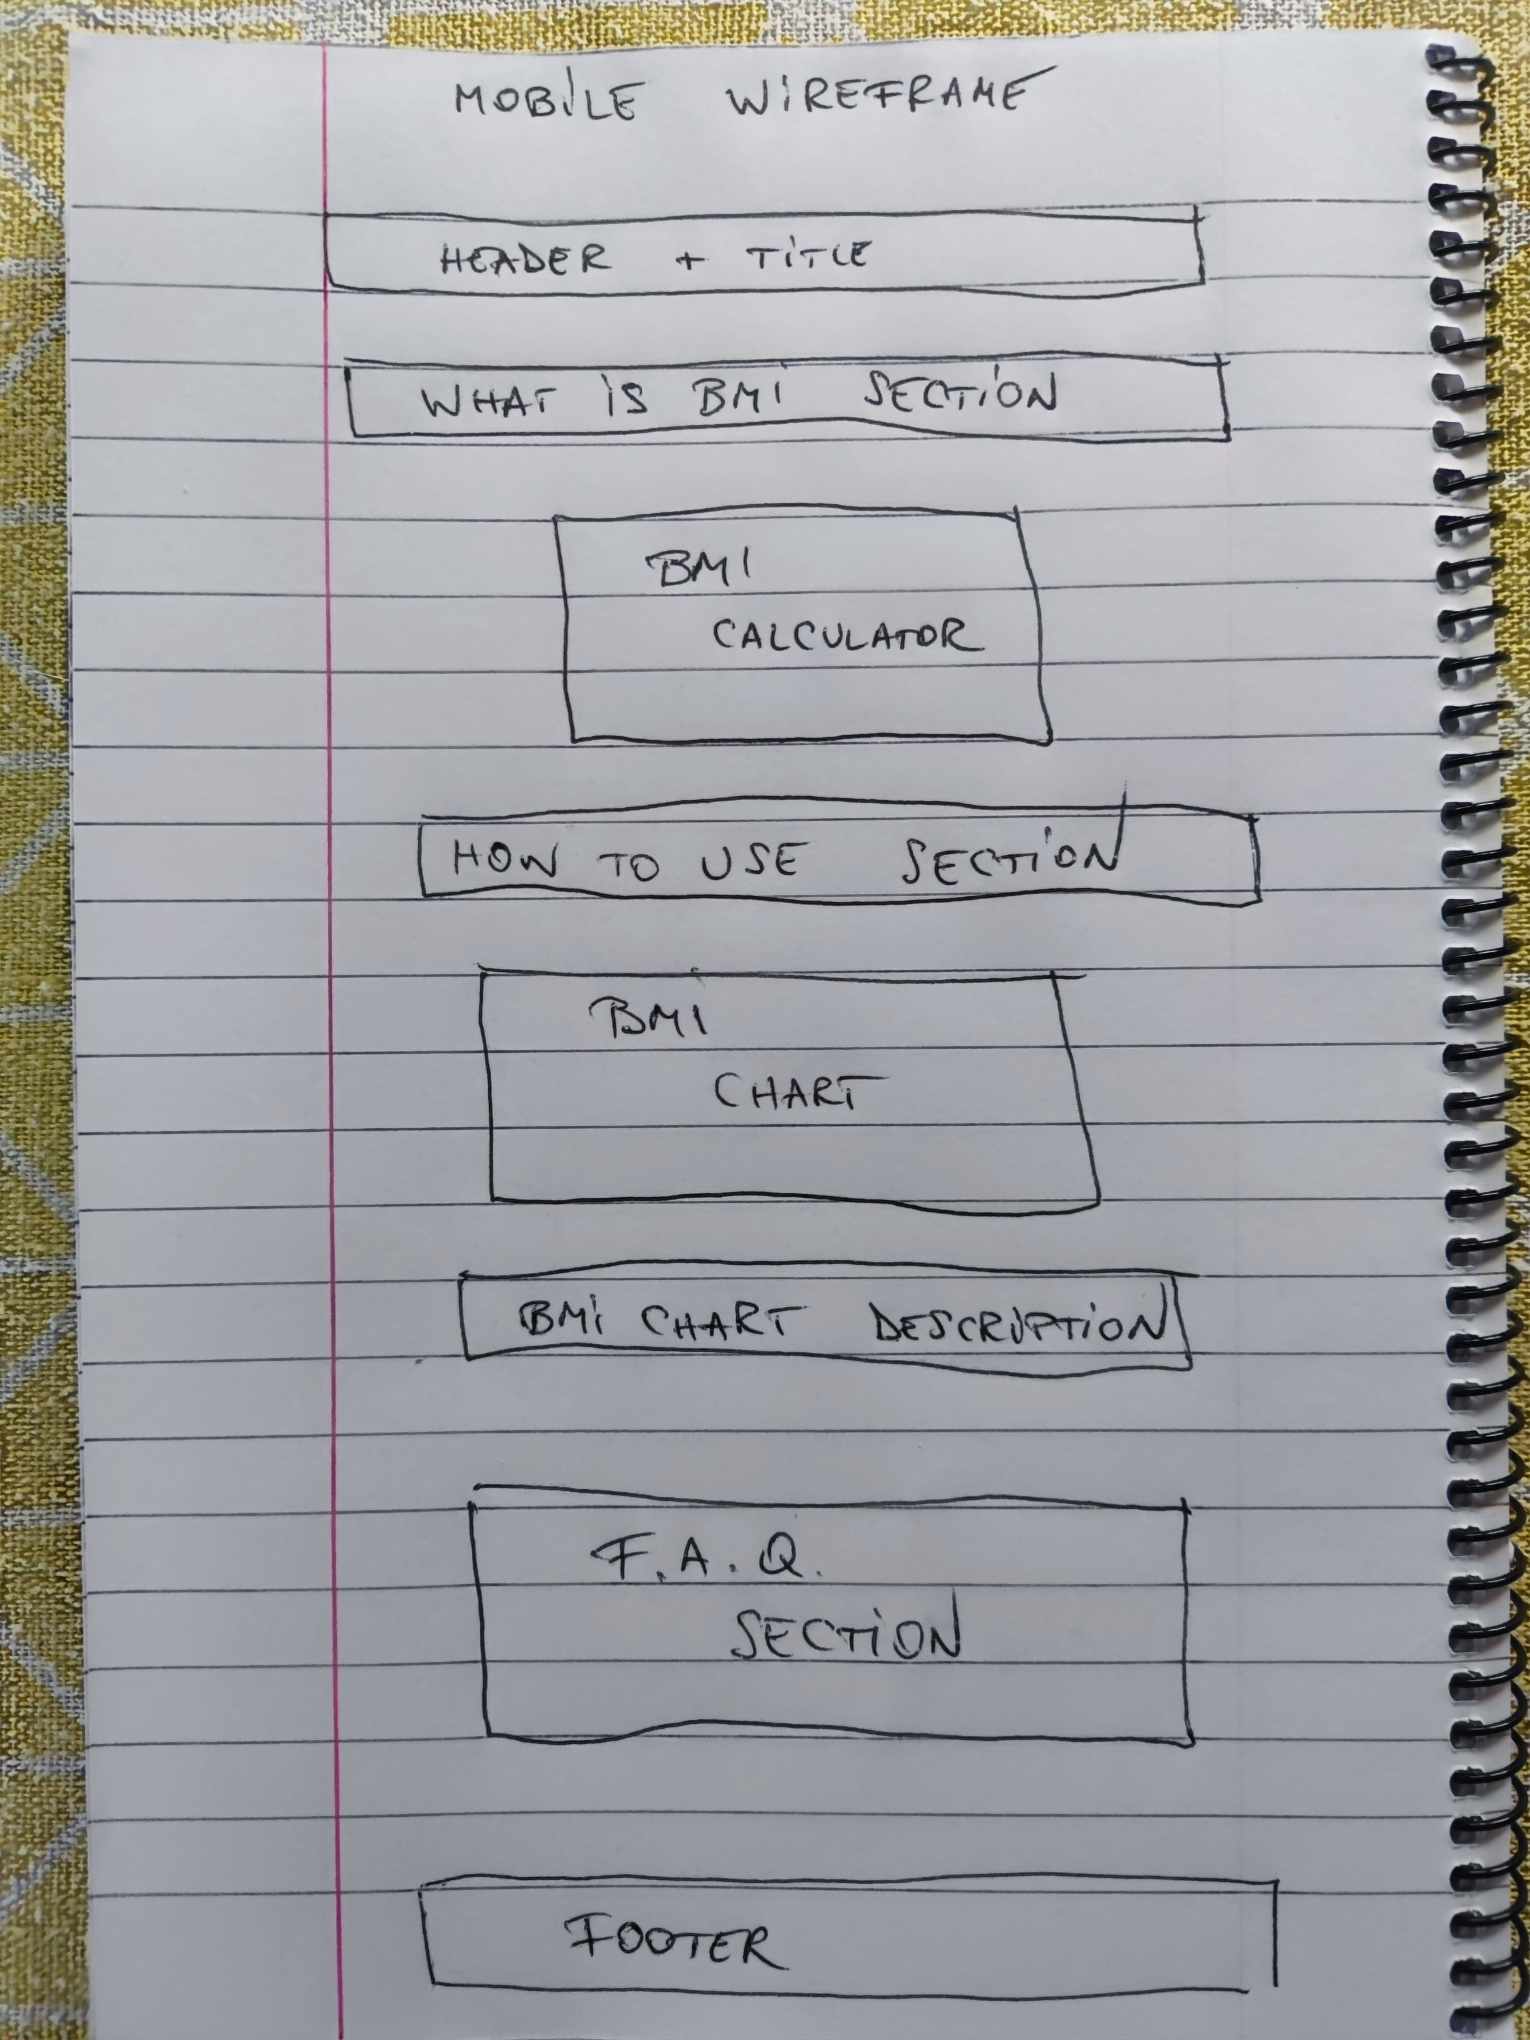 MOBILE WIREFRAME
HEADER + TITLE
WHAT IS BMI SECTION
BMI
CALCULATOR
HOW TO USE SECTION
BMI
CHART
BMI CHART DESCRIPTION
F.A.Q.
SECTION
FOOTER